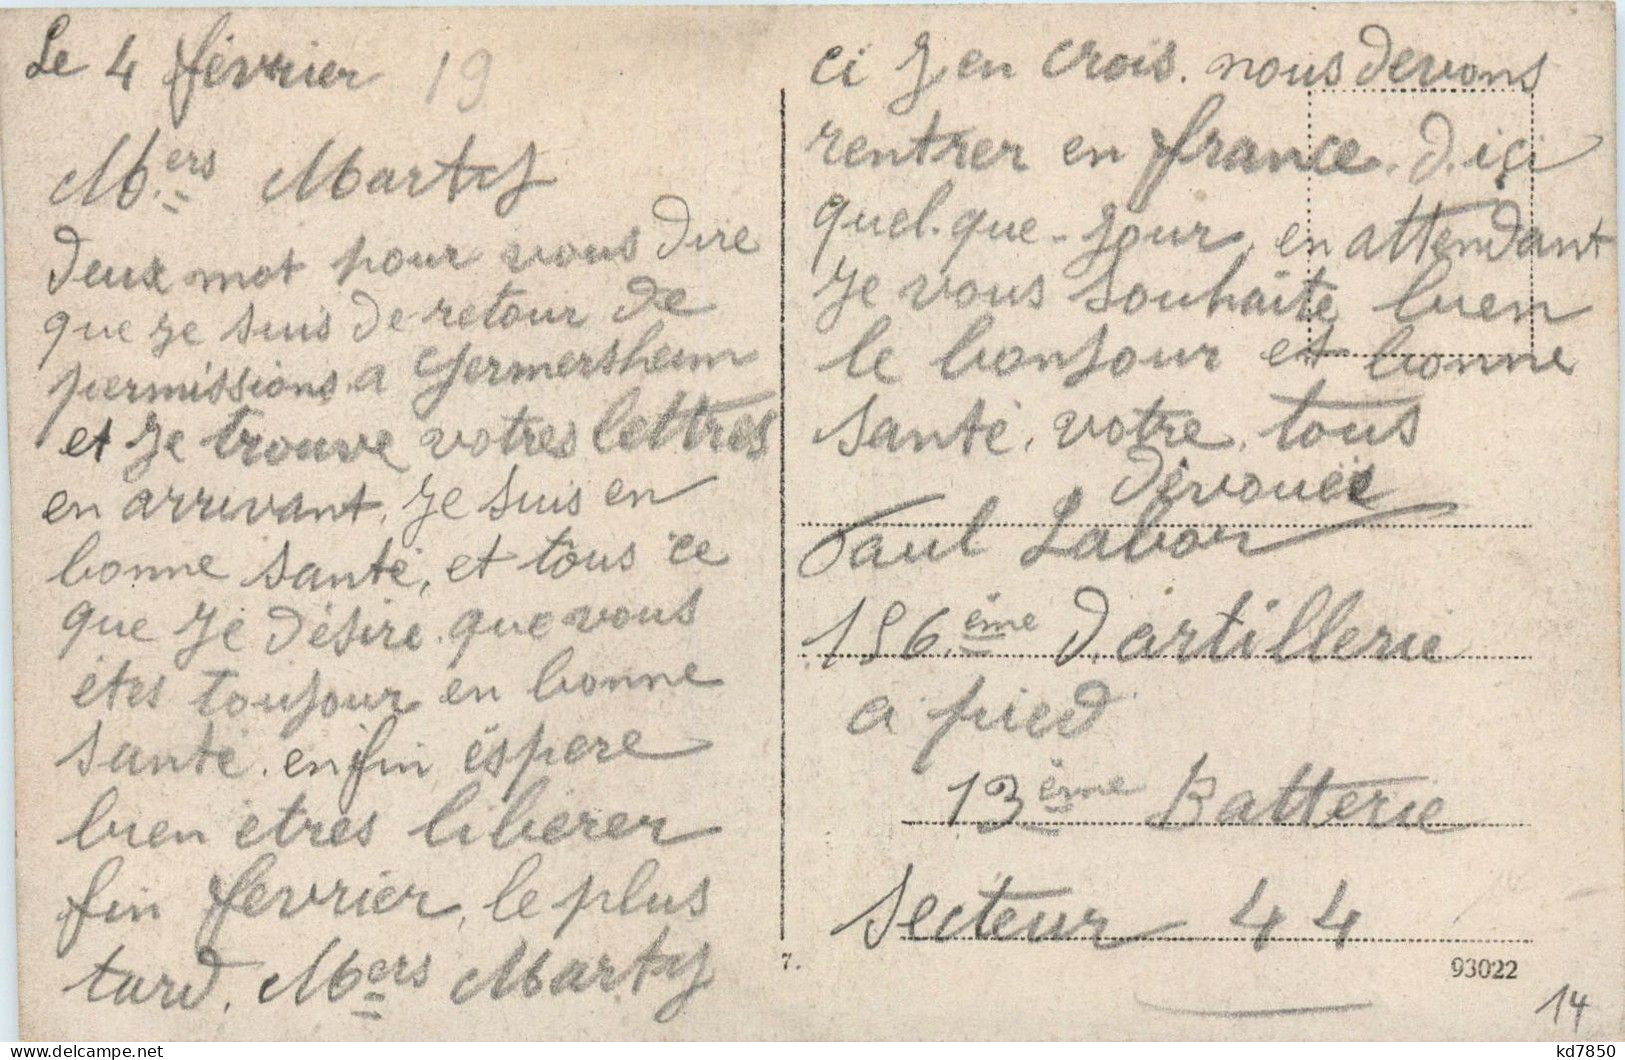 Le 4 février 19
M.ers Marty
Deux mot pour vous dire
que je suis de retour de
permissions a Germersheim
et je trouve votres lettres
en arrivant, je suis en
bonne santé, et tous ce
que je désire que vous
étes toujour en bonne
santé. enfin éspere
bien etres libérer
fin fevrier, le plus
tard. Mers Marty
ci j en crois. nous devons
rentrer en france. d.ici
quel.que-jour, en attendant
je vous souhaite bien
le bonjour et bonne
santé. votre. tous
dévouée
Paul Labor
156.ème d.artillerie
a pied
13ème Batterie
Secteur 44
7.
93022
14
kd7850